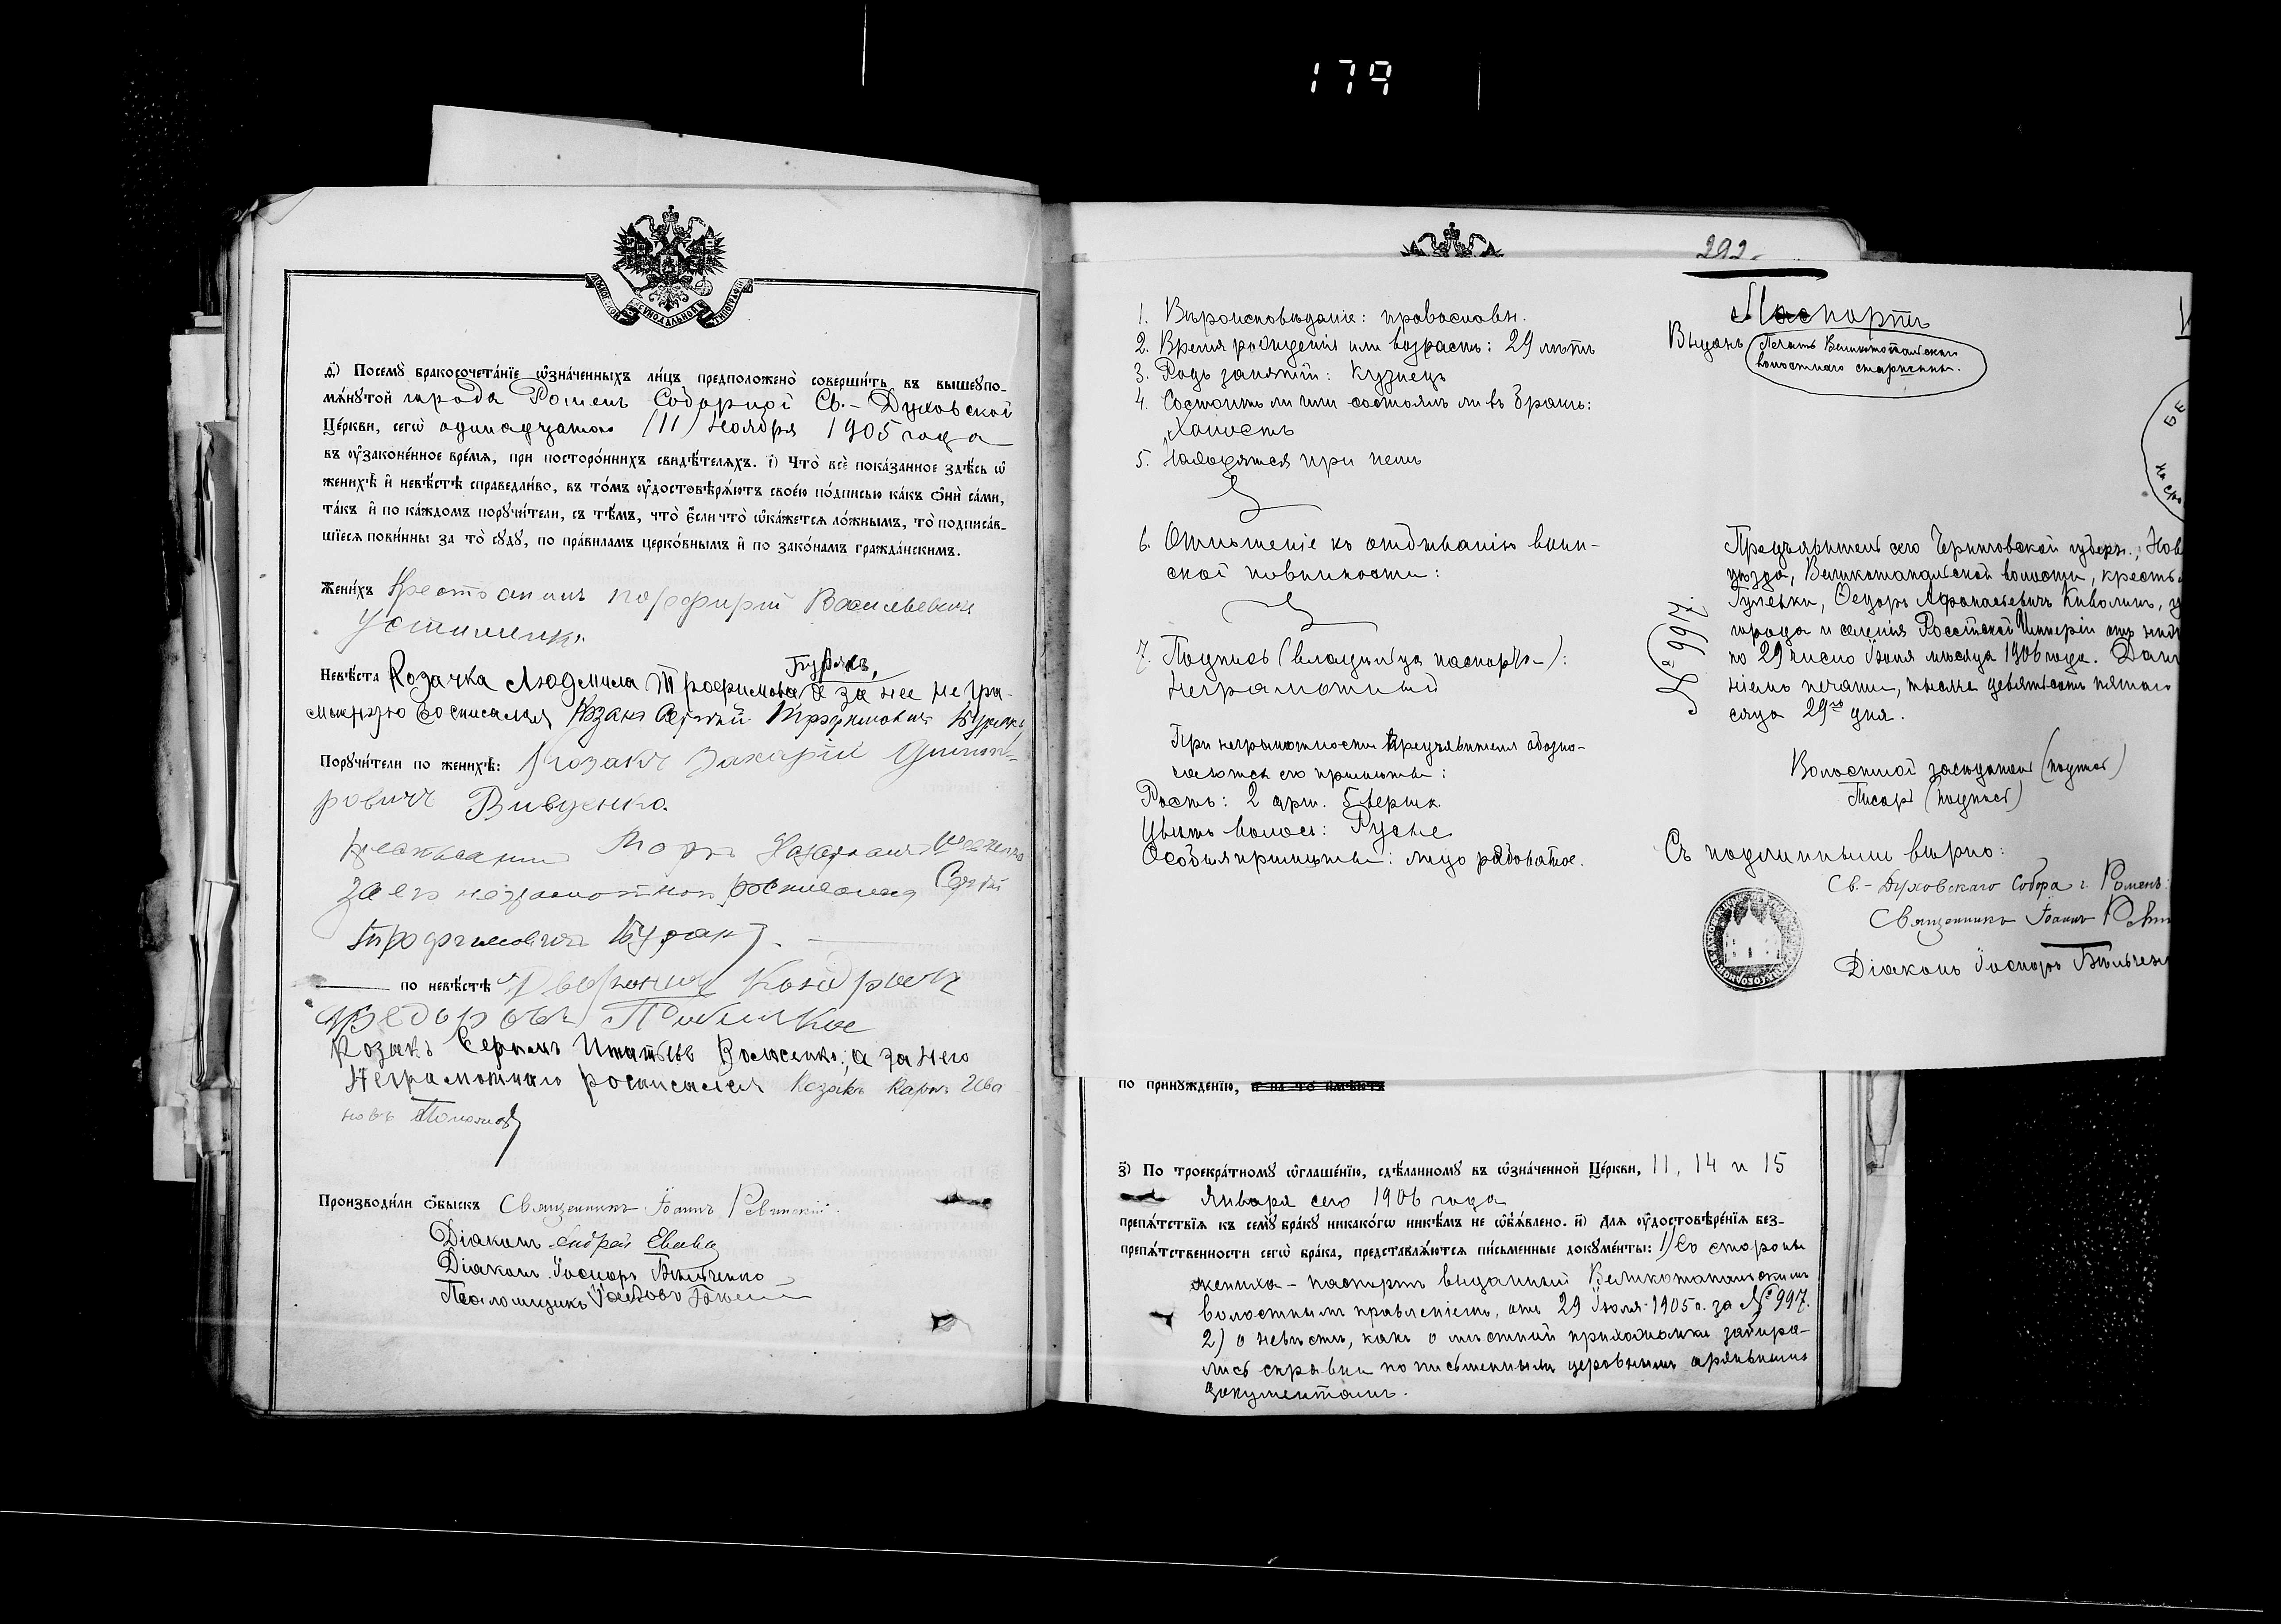 179
МОСКОВСКОЙ СѴНОДАЛЬНОЙ ТИПОГРАФІИ
д҃) Посемꙋ̀ бракосочета́нїе ѡ҆зна́ченныхъ ли́цъ предположено̀ соверши́ть въ вышеꙋпо-
мѧ́нꙋтой города Роменъ Соборной Св.-Духовской
Це́ркви, сегѡ̀ одинадцатого (11) Ноября 1905 года
въ ᲂу҆зако́ненное вре́мѧ, при посторо́ннихъ свидѣ́телѧхъ. і҃) Что̀ всѐ пока́занное здѣ́сь ѡ҆
женихѣ̀ и҆ невѣ́стѣ справедли́во, въ то́мъ ᲂу҆достовѣрѧ́ютъ свое́ю по́дписью ка́къ ѻ҆нѝ са́ми,
та́къ и҆ по ка́ждомъ порꙋчи́тели, съ тѣ́мъ, что̀ є҆́сли что̀ ѡ҆ка́жетсѧ ло́жнымъ, то̀ подписа́в-
шїесѧ пови́нны за то̀ сꙋдꙋ̀, по пра́виламъ церко́внымъ и҆ по зако́намъ гражда́нскимъ.
Жени́хъ Крестьянинъ Порфирій Васильевичъ
Устименко
Невѣ́ста Козачка Людмила Трофимова Бурякъ, а за нее негра-
мотную росписался Козакъ Сергѣй Трофимовичъ Бурякъ
Порꙋчи́тели по женихѣ̀: Козакъ Захарій
Вивденко.
Крестьянинъ
за его неграмотного росписался Сергѣй
Трофимовичъ Бурякъ
по невѣ́стѣ Дворянинъ
Козакъ а за него
неграмотнаго росписался Козакъ Карпъ Ива
новъ
Производи́ли ѻ҆́быскъ Священникъ Іоаннъ Ровинскій.
Діаконъ Андрей
Діаконъ Іосифъ Бѣльченко
Псаломщикъ Іаковъ
292.
1. Вѣроисповѣданіе: православн.
2. Время рожденія или возрастъ: 29 лѣтъ
3. Родъ занятій: кузнецъ
4. Состоитъ ли или состоялъ ли въ бракѣ:
Холостъ
5. Находятся при немъ
6. Отношеніе къ отбыванію воин-
ской повинности:
7. Подпись (владѣльца паспорта):
Неграмотный
При неграмотности предъявителя обозна-
чаются его примѣты:
Ростъ: 2 арш. 5 вершк.
Цвѣтъ волосъ: Русые
Особыя примѣты: лицо рябоватое.
Паспортъ
Выданъ Печать Великотопальскаго
волостного старшины.
№ 997.
Предъявитель сего Черниговской губерн., Нов
уѣзда, Великотопальской волости, крестьян
Гуленки, Федоръ Афанасьевичъ Киволинъ, у
города и селенія Россійской Имперіи отъ ниж
по 29 число Іюля мѣсяца 1906 года. Дан
ніемъ печати, тысяча девятьсотъ пятаго
сяца 29го дня.
Волостной засѣдатель (подпись)
Писарь (подпись)
Съ подлиннымъ вѣрно:
Св.-Духовскаго Собора г. Роменъ:
Священникъ Іоаннъ Ровин
Діаконъ Іосифъ Бѣльчен
по принꙋжде́нїю,
з҃) По троекра́тномꙋ ѡ҆глаше́нїю, сдѣ́ланномꙋ въ ѡ҆зна́ченной Це́ркви, 11, 14 и 15
Января сего 1906 года
препѧ́тствїѧ къ семꙋ̀ бра́кꙋ никако́гѡ никѣ́мъ не ѡ҆б̾ѧ́влено. и҃) Длѧ ᲂу҆достовѣре́нїѧ без-
препѧ́тственности сегѡ̀ бра́ка, представлѧ́ютсѧ пи́сьменные докꙋме́нты: 1) Со стороны
жениха - паспортъ выданный Великотопальскимъ
волостнымъ правленіемъ, отъ 29 Іюля 1905 г. за № 997.
2) о невѣстѣ, какъ о мѣстной прихожанкѣ забира-
лись справки по письменнымъ церковнымъ архивнымъ
документамъ.